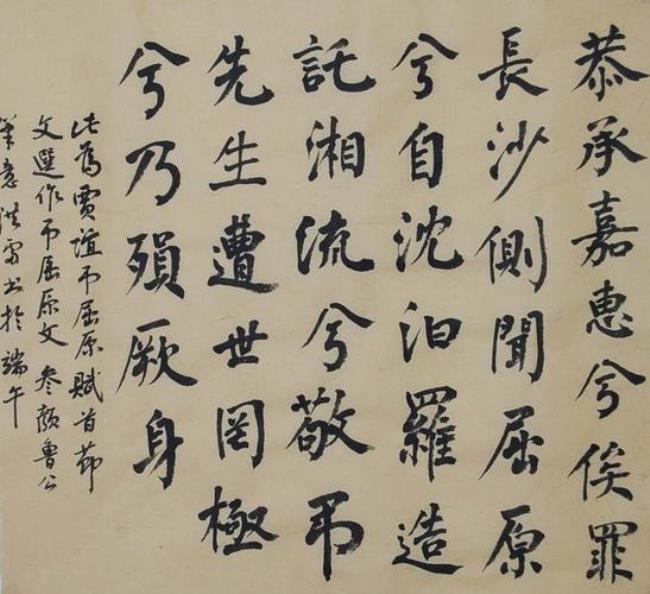 恭承嘉惠兮俟罪
長沙側聞屈原
兮自沈汨羅造
託湘流兮敬弔
先生遭世罔極
兮乃殞厥身
此為賈誼弔屈原賦首節
文選作弔屈原文 叅顏魯公
筆意 洪 書於端午